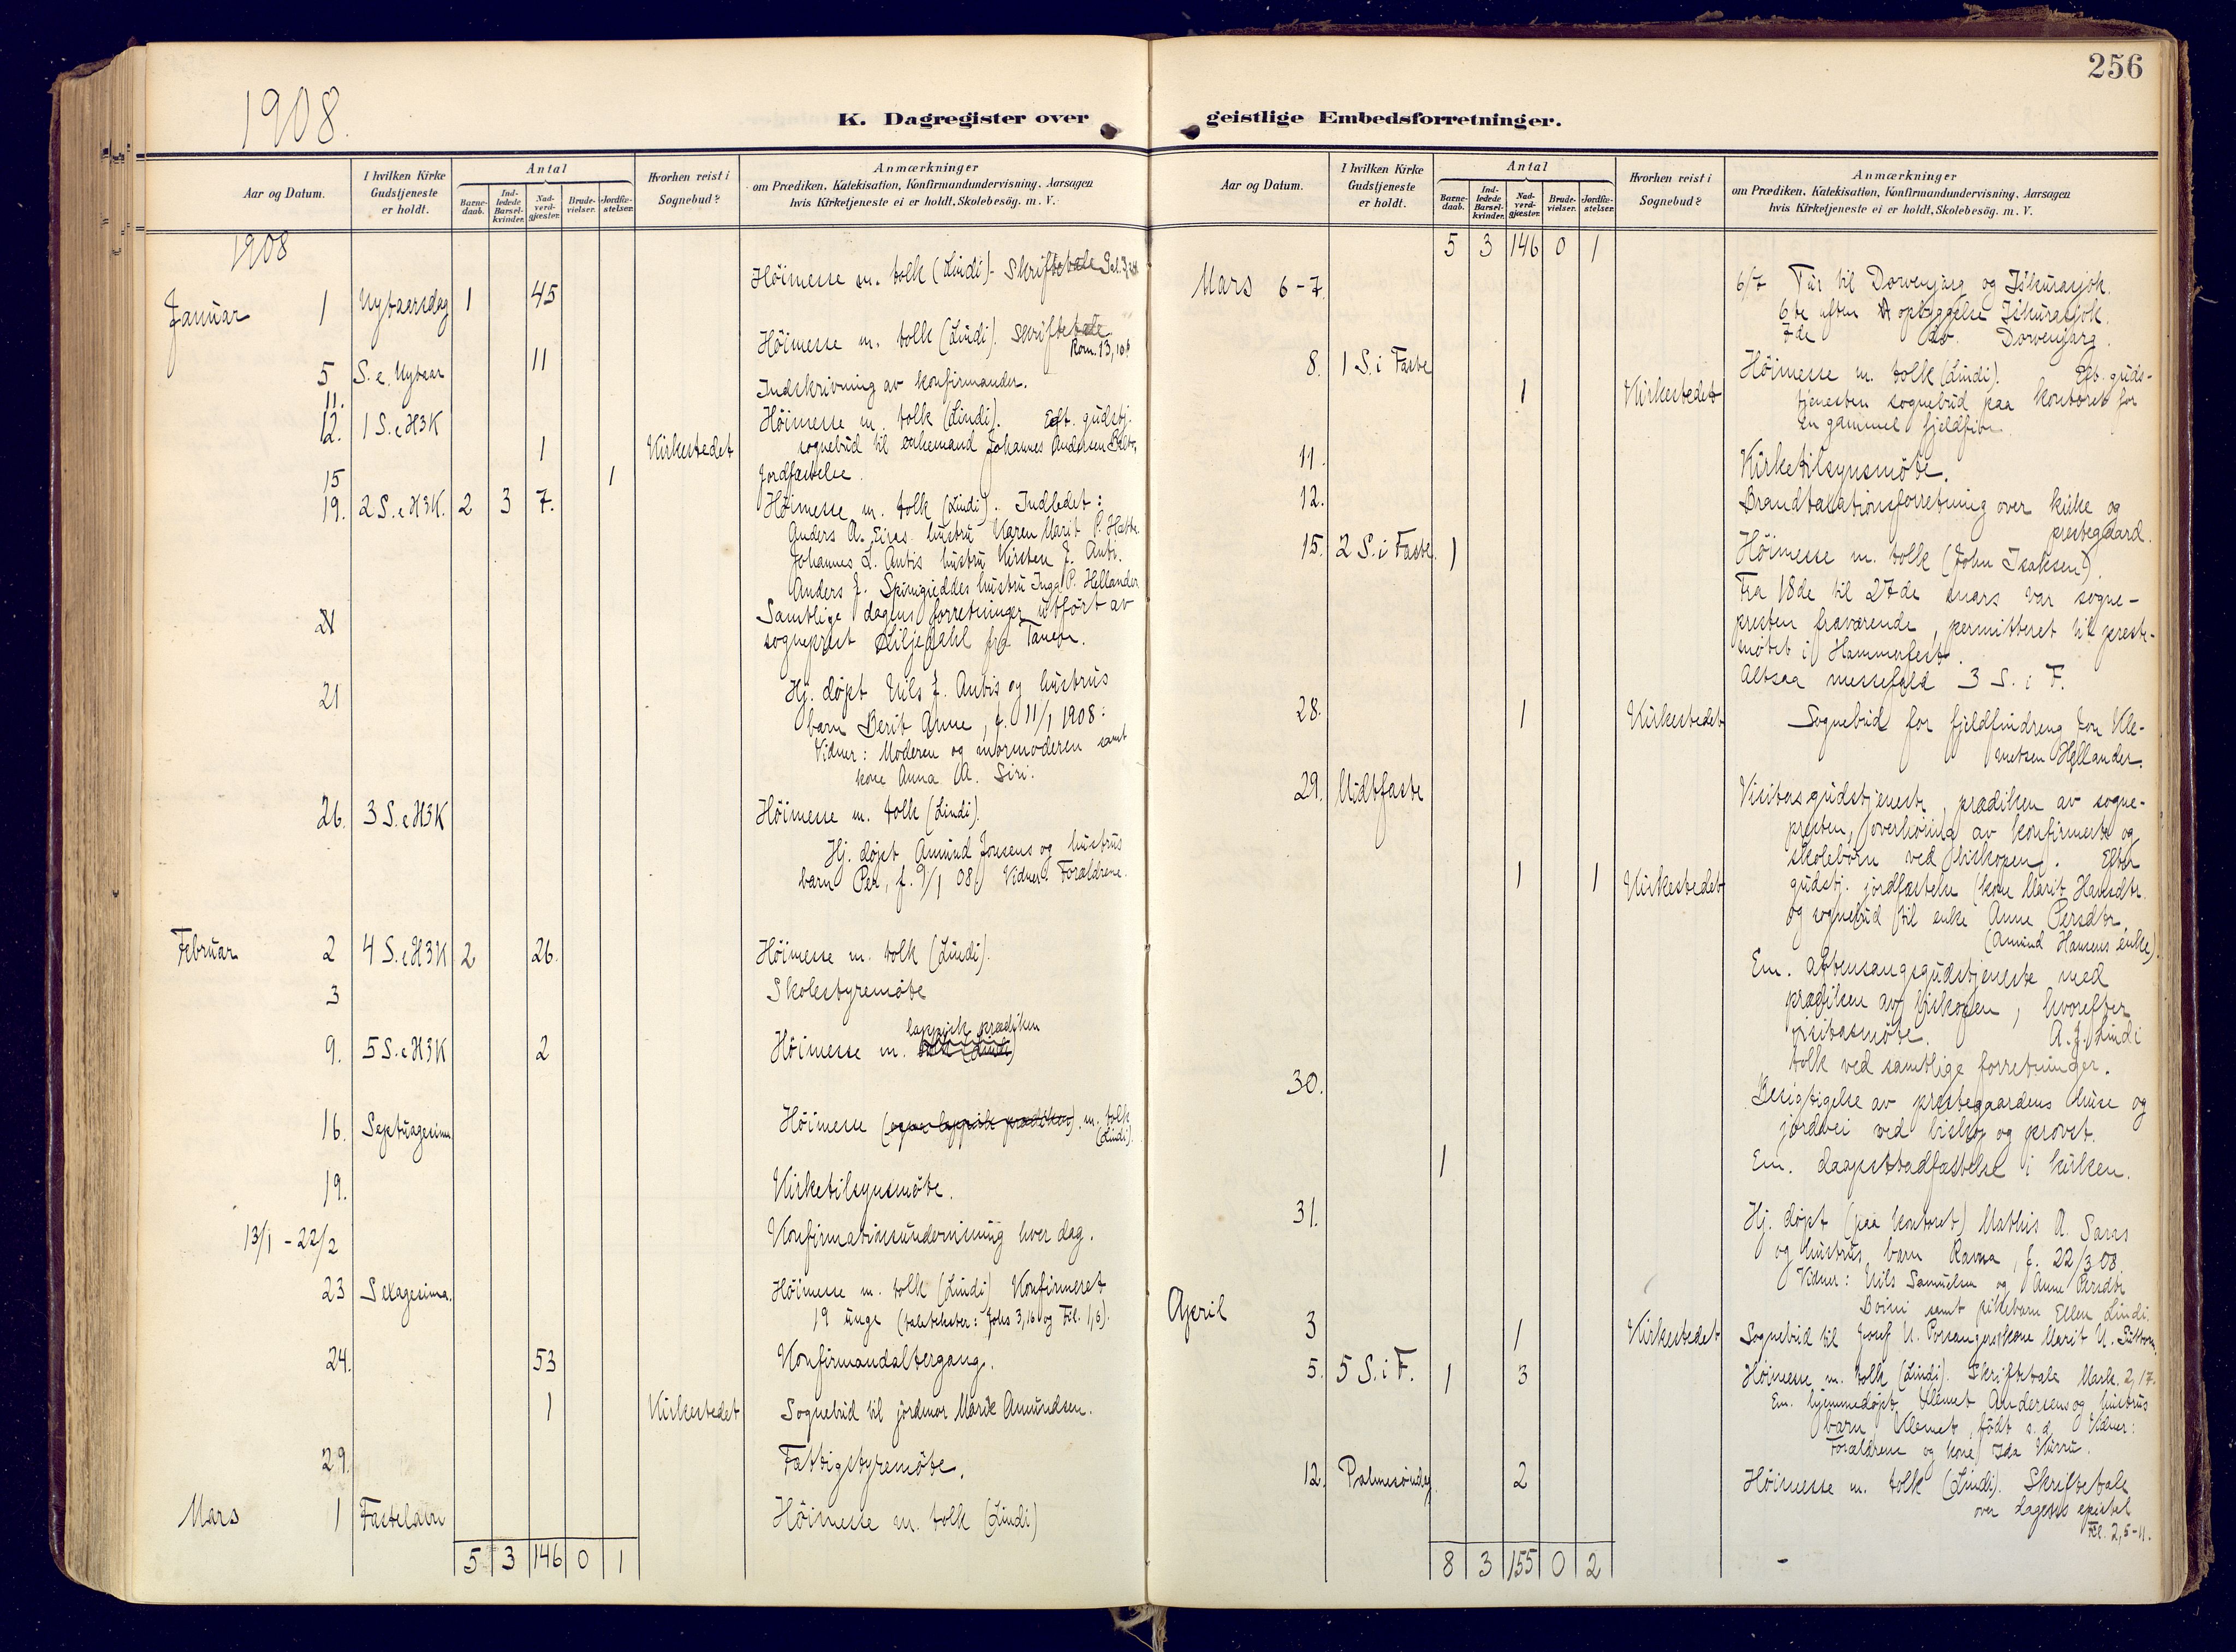 256
1908.
K. Dagregister over
geistlige Embedsforretninger.
Aar og Datum.
I hvilken Kirke Gudstjeneste er holdt.
Antal
Barne-daab.
Ind-ledede Barsel-kvinder.
Nad-verd-gjæster.
Brude-vielser.
Jordfæ-stelser.
Hvorhen reist i Sognebud?
Anmærkninger
om Prædiken, Katekisation, Konfirmandundervisning. Aarsagen
hvis Kirketjeneste ei er holdt, Skolebesög. m. V.
1908
Höimesse m. tolk (Lindi) - Skriftetale
Januar 1 Nytaarsdag 1 45
Höimesse m. tolk (Lindi). Skriftetale
Rom. 13,
5 S. e. Nytaar 11
11. Indskrivning av konfirmander.
12. 1 S. e H3K Höimesse m. tolk (Lindi). Eft. gudstj.
1 Kirkestedet sognebud til enkemand Johannes Andersen
15 1 Jordfæstelse.
19. 2 S. e H3K. 2 3 7. Höimesse m. tolk (Lindi). Indledet:
Anders A. Eiras hustru Karen Marit P. Hætta
Johannes L. Antis hustru Kirsten J. Anti.
Anders J. hustru Inga P. Hellander
Samtlige dagens forretninger utført av
sogneprest Liljedahl fra Tanen.
21 Hj. døpt Nils J. Antis og hustrus
barn Berit Anne, f. 11/1 1908:
Vidner: Moderen og mormoderen samt
kone Anna A. Siri.
26. 3 S. e H3K Höimesse m. tolk (Lindi).
Hj. døpt Amund Jonsens og hustrus
barn Per, f. 9/1 08. Vidner: Forældrene.
Februar 2 4 S. e H3K 2 26. Höimesse m. tolk (Lindi).
3 Skolestyremöte
lappisk prædiken
9. 5 S. e H3K 2 Höimesse m. tolk (Lindi)
16. Septuagesima Höimesse (egen lappisk prædiken). m. tolk
(Lindi).
19. Kirketilsynsmöte.
13/1 - 22/2 Konfirmationsundervisning hver dag.
23 Sexagesima. Höimesse m. tolk (Lindi) Konfirmeret
19 unge (taletekster: Johs 3,16 og Fil. 1,6).
24. 53 Konfirmandaltergang.
1 Kirkestedet Sognebud til jordmor Marie Amundsen.
29. Fattigstyremöte.
Mars 1 Fastelavn Höimesse m. tolk (Lindi)
5 3 146 0 1
Aar og Datum.
I hvilken Kirke Gudstjeneste er holdt.
Antal
Barne-daab.
Ind-ledede Barsel-kvinder.
Nad-verd-gjæster.
Brude-vielser.
Jordfæ-stelser.
Hvorhen reist i Sognebud?
Anmærkninger
om Prædiken, Katekisation, Konfirmandundervisning. Aarsagen
hvis Kirketjeneste ei er holdt, Skolebesög. m. V.
5 3 146 0 1
Mars 6-7. 6/7 Tur til Dorvenjarg og Iskurasjok.
6te aften opbyggelse Iskurasjok.
7de do. Dorvenjarg.
8. 1 S. i Faste Höimesse m. tolk (Lindi). Eft. guds-
1 Kirkestedet tjenesten sognebud paa kontoret for
en gammel
11. Kirketilsynsmöte.
12. Brandtaxationsforretning over kirke og
prestegaard.
15. 2 S. i Faste. 1 Höimesse m. tolk (John Isaksen).
Fra 18de til 27de mars var sogne-
presten fraværende, permitteret til preste-
mötet i Hammerfest.
Altsaa messefald 3 S. i F.
28. 1 Kirkestedet Sognebud for fjeldfindreng Jon Kle-
metsen Hellander.
29. Midtfaste Visitasgudstjeneste, prædiken av sogne-
presten, overhöring av konfirmerte og
skolebörn ved biskopen. Efter
1 1 Kirkestedet gudstj. jordfæstelse (kone Marit Hansdtr.
og sognebud til enke Anne Persdtr.
(Amund Hansens enke).
Em. aftensangsgudstjeneste med
prædiken av biskopen, hvorefter
visitasmöte. A. J. Lindi
tolk ved samtlige forretninger.
30. Besigtigelse av prestegaardens huse og
jordvei ved biskop og provst.
1 Em. daapsstadfæstelse i kirken.
31. Hj. døpt (paa kontoret) Mathis A. Saras
og hustrus barn Ravna, f. 22/3 08
Vidner: Nils Samuelsen og Anne Persdtr
Boini samt pikebarn Ellen Lindi.
April 3 1 Kirkestedet Sognebud til Josef N. Porsangers kone Marit N.
5. 5 S. i F. 1 3 Höimesse m. tolk (Lindi). Skriftetale Mark. 2,17.
Em. hjemmedøpt Klemet Andersens og hustrus
barn Klemet, födt s.d. Vidner:
Forældrene og kone Ida
12. Palmesöndag 2 Höimesse m. tolk (Lindi). Skriftetale
over dagens epistel
Fil. 2, 5-11.
8 3 155 0 2